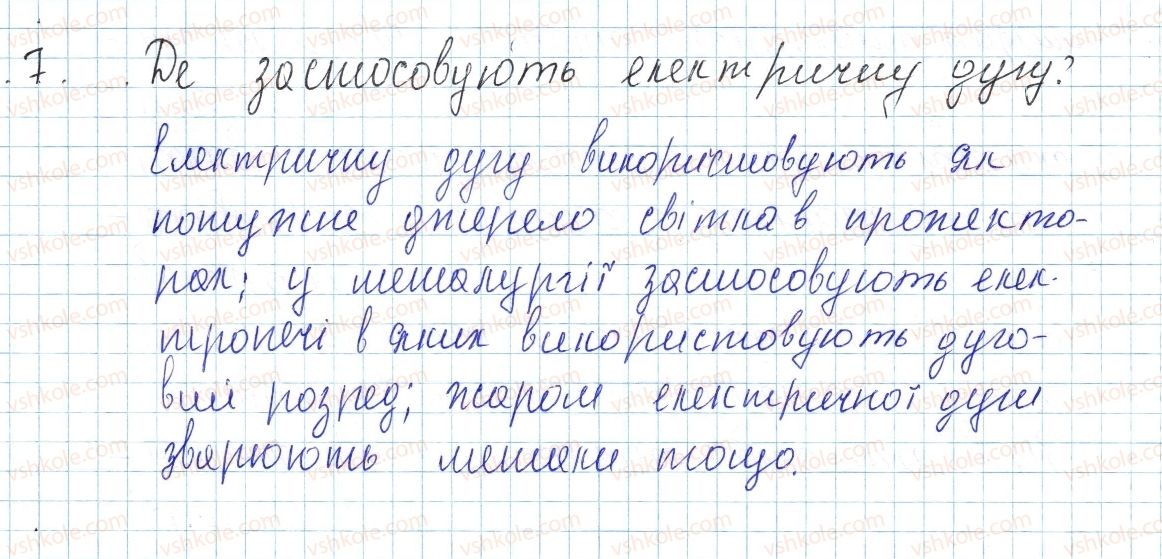 7. Де застосовують електричну дугу?
Електричну дугу використовують як
потужне джерело світла в прожекто-
рах; у металургії застосовують елек-
тропечі в яких використовують дуго-
вий розряд; жаром електричної дуги
зварюють метали тощо.